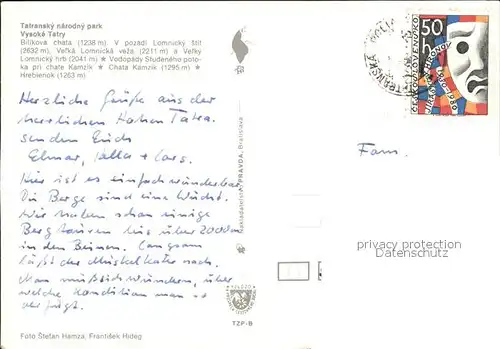 Tatranský národný park
Vysoké Tatry
Bilíkova chata (1238 m). V pozadí Lomnický štít
(2632 m), Veľká Lomnická veža (2211 m) a Veľký
Lomnický hrb (2041 m) ★ Vodopády Studeného poto-
ka pri chate Kamzík ★ Chata Kamzík (1295 m) ★
Hrebienok (1263 m)
Herzliche Grüße aus der
herrlichen Hohen Tatra.
senden Euch
Elmar, + Lars.
Hier ist es einfach wunderbar
Die Berge sind eine Wucht.
Wir haben schon einige
Bergtouren bis über 2000 m
in den Beinen. Langsam
läßt der Muskelkater nach.
Man muß sich wundern, über
welche Kondition man
verfügt.
Foto Štefan Hamza, František Hideg
Nakladateľstvo PRAVDA, Bratislava
TZP-B
TATRANSKÁ
50
h
ČESKOSLOVENSKO
JIRÁSKŮV HRONOV
1980
Fam.
privacy protection
Datenschutz